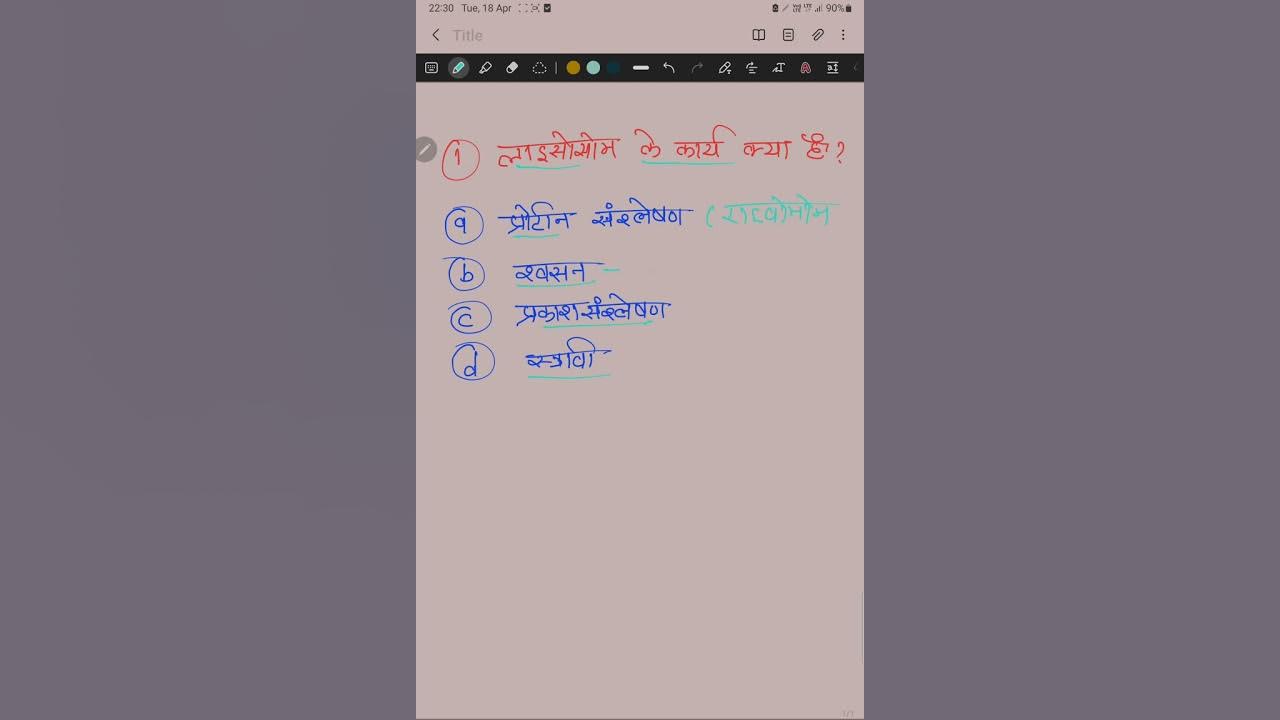 22:30 Tue, 18 Apr 90%
Title
1 लाइसोसोम के कार्य क्या है?
a प्रोटीन संश्लेषण (राइबोसोम
b श्वसन -
c प्रकाशसंश्लेषण
d स्त्रावी
1/1